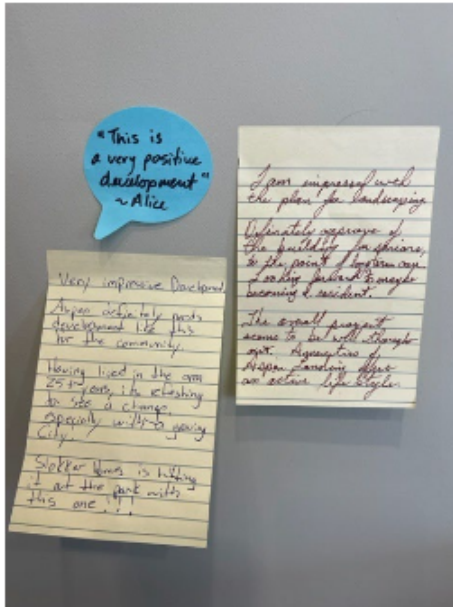 "This is
a very positive
development"
~ Alice
Very Impressive Development
Aspen definitely needs
development like this
for the community.
Having lived in the area
25+ years, its refreshing
to see a change,
especially with a growing
City.
Slokker Homes is hitting
it out the park with
this one!!!
I am impressed with
the plan for landscaping
Definately approve of
the building for seniors,
to the point of long term care
Looking forward to maybe
becoming a resident.
The overall project
seems to be well thought
out. Amenities of
Aspen Landing
an active life style.